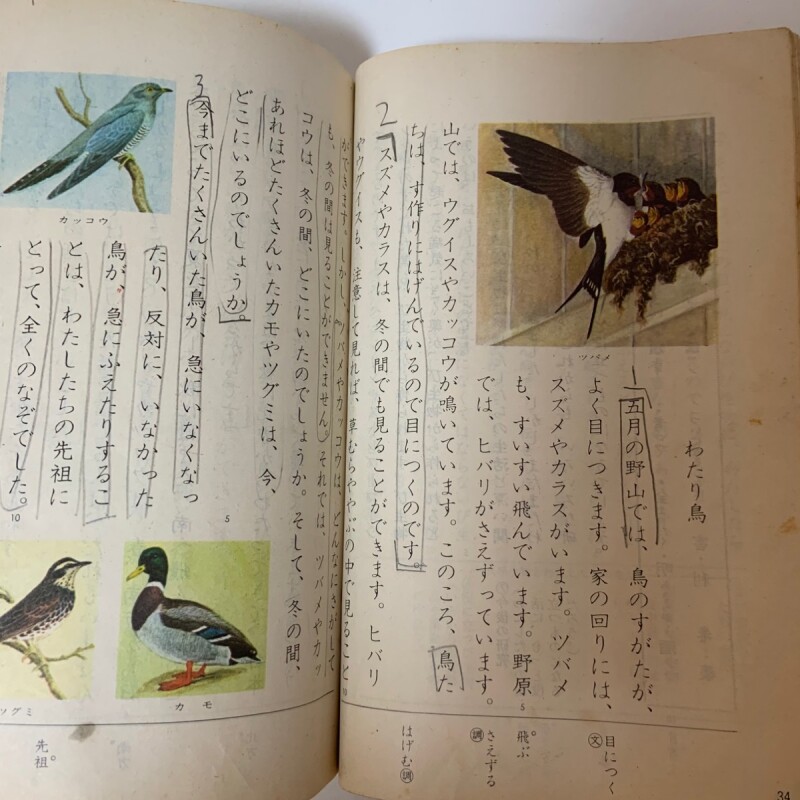 わたり鳥
1
五月の野山では、鳥のすがたが、
よく目につきます。家の回りには、
スズメやカラスがいます。ツバメ
も、すいすい飛んでいます。野原
では、ヒバリがさえずっています。
山では、ウグイスやカッコウが鳴いています。このころ、鳥た
ちは、す作りにはげんでいるので目につくのです。
2
スズメやカラスは、冬の間でも見ることができます。ヒバリ
やウグイスも、注意して見れば、草むらややぶの中で見ること
ができます。しかし、ツバメやカッコウは、どんなにさがして
も、冬の間は見ることができません。それでは、ツバメやカッ
コウは、冬の間、どこにいたのでしょうか。そして、冬の間、
あれほどたくさんいたカモやツグミは、今、
どこにいるのでしょうか。
3
今までたくさんいた鳥が、急にいなくなっ
たり、反対に、いなかった
鳥が、急にふえたりするこ
とは、わたしたちの先祖に
とって、全くのなぞでした。
ツバメ
カッコウ
カモ
ツグミ
5
10
5
10
目につく
文
飛ぶ
さえずる
調
はげむ
調
先祖
34